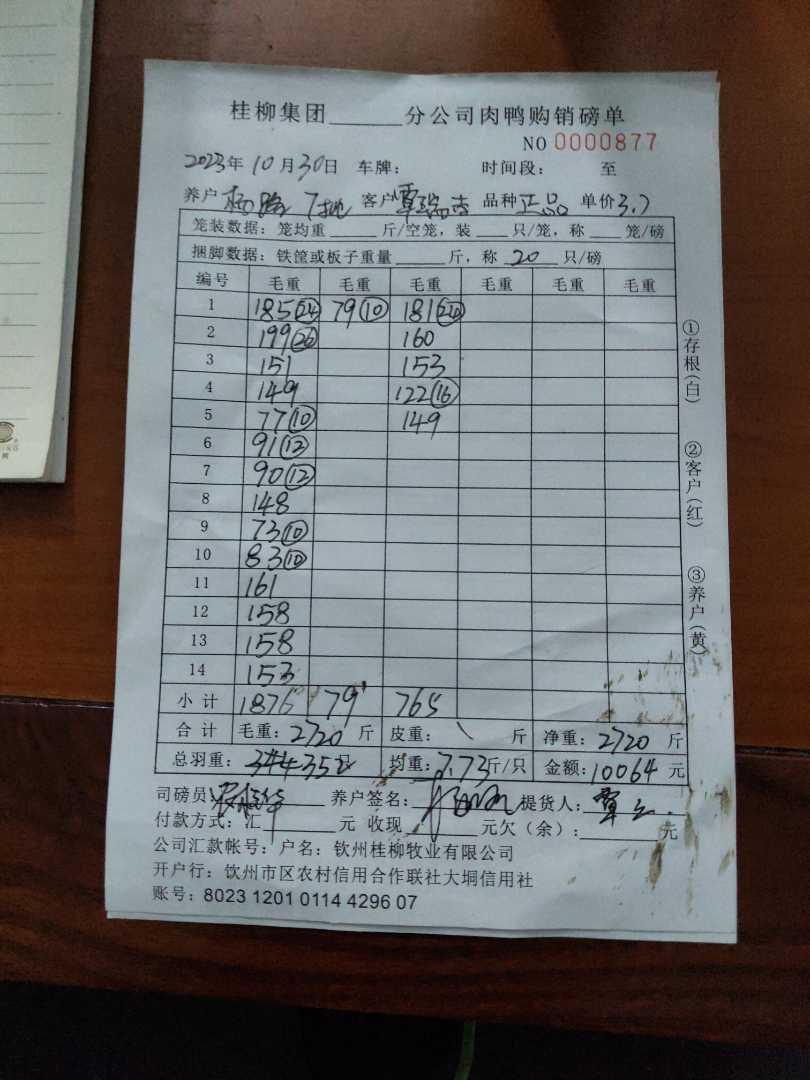 桂柳集团______分公司肉鸭购销磅单
NO 0000877
2023年10月30日 车牌: 时间段: 至
养户 7批 客户 覃瑞 品种 正品 单价 3.7
笼装数据:笼均重____斤/空笼,装___只/笼,称___笼/磅
捆脚数据:铁筐或板子重量____斤,称 20 只/磅
编号 毛重 毛重 毛重 毛重 毛重 毛重
1 185(24) 79(10) 181(24)
2 199(26) 160
3 151 153
4 149 122(16)
5 77(10) 149
6 91(12)
7 90(12)
8 148
9 73(10)
10 83(10)
11 161
12 158
13 158
14 153
小计 1876 79 765
合计 毛重:2720 斤 皮重: \ 斤 净重:2720 斤
总羽重: 352 均重:7.73斤/只 金额:10064元
司磅员: 养户签名: 提货人:覃
付款方式:汇______元 收现______元欠(余):______元
公司汇款帐号:户名:钦州桂柳牧业有限公司
开户行:钦州市区农村信用合作联社大垌信用社
账号:8023 1201 0114 4296 07
①存根(白)
②客户(红)
③养户(黄)